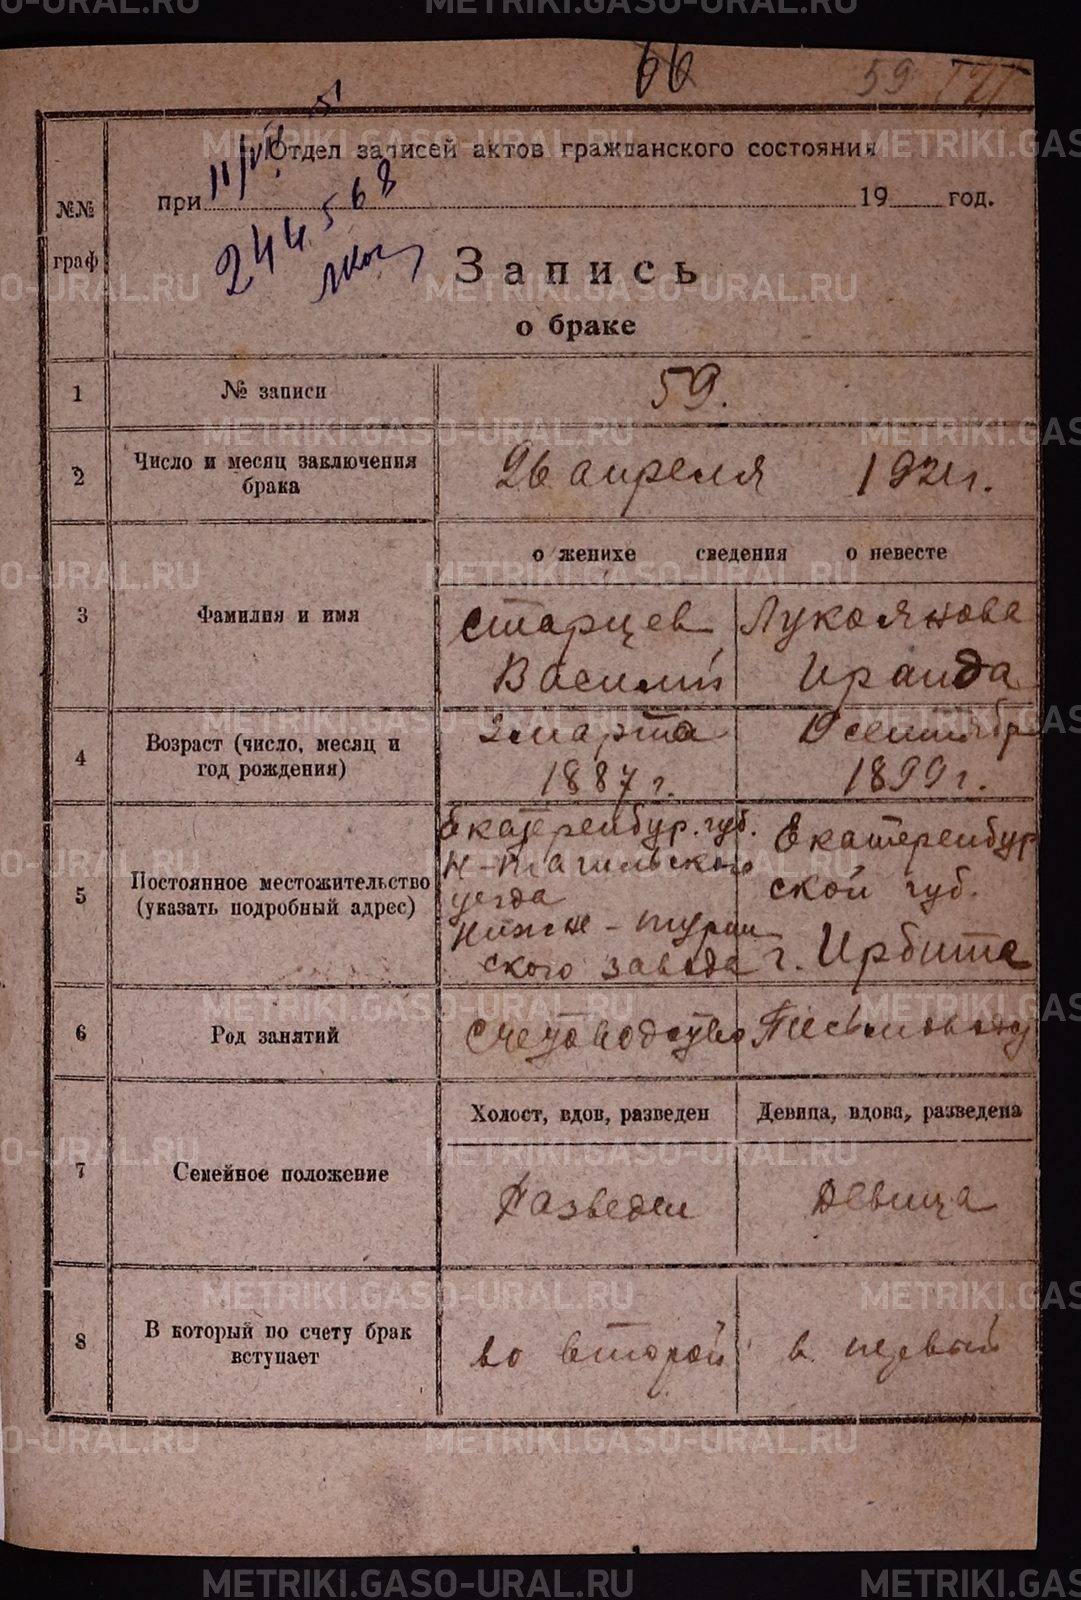 66
59
Отдел записей актов гражданского состояния
11/VIII 51
при 19 год.
244568
№№ граф
Запись
о браке
1 № записи 59.
2 Число и месяц заключения брака 26 апреля 1921 г.
о женихе сведения о невесте
3 Фамилия и имя
Старцев Лукоянова
Василий Ираида
4 Возраст (число, месяц и год рождения)
2 марта 19 сентябр
1887 г. 1899 г.
5 Постоянное местожительство (указать подробный адрес)
Екатеренбур. губ. Екатеренбур
Н-Тагильского ской губ.
уезда
Нижне-турин г. Ирбита
ского завода
6 Род занятий Счетоводство Письмоводу
Холост, вдов, разведен Девица, вдова, разведена
7 Семейное положение Разведен Девица
8 В который по счету брак вступает во второй в первый
METRIKI.GASO-URAL.RU